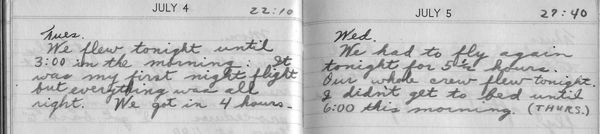 JULY 4 22:10
Tues.
We flew tonight until
3:00 in the morning. It
was my first night flight
but everything was all
right. We got in 4 hours.
JULY 5 27:40
Wed.
We had to fly again
tonight for 5½ hours.
Our whole crew flew tonight.
I didn't get to bed until
6:00 this morning. (THURS.)